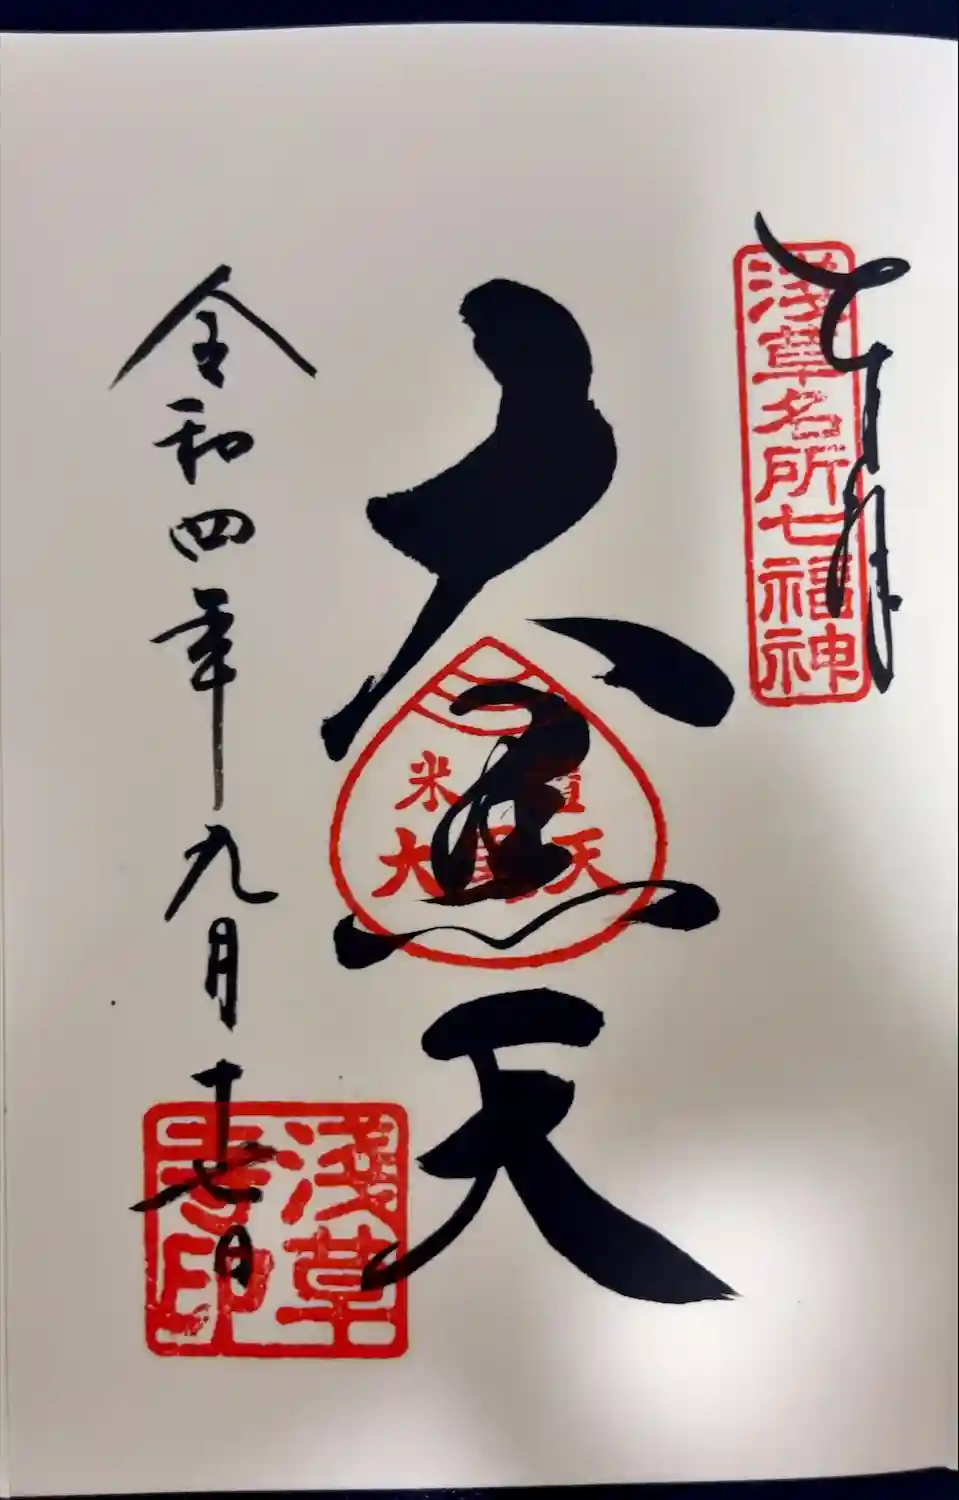 奉拝
淺草名所七福神
大黒天
米櫃
大黒天
令和四年九月十七日
淺草
寺印